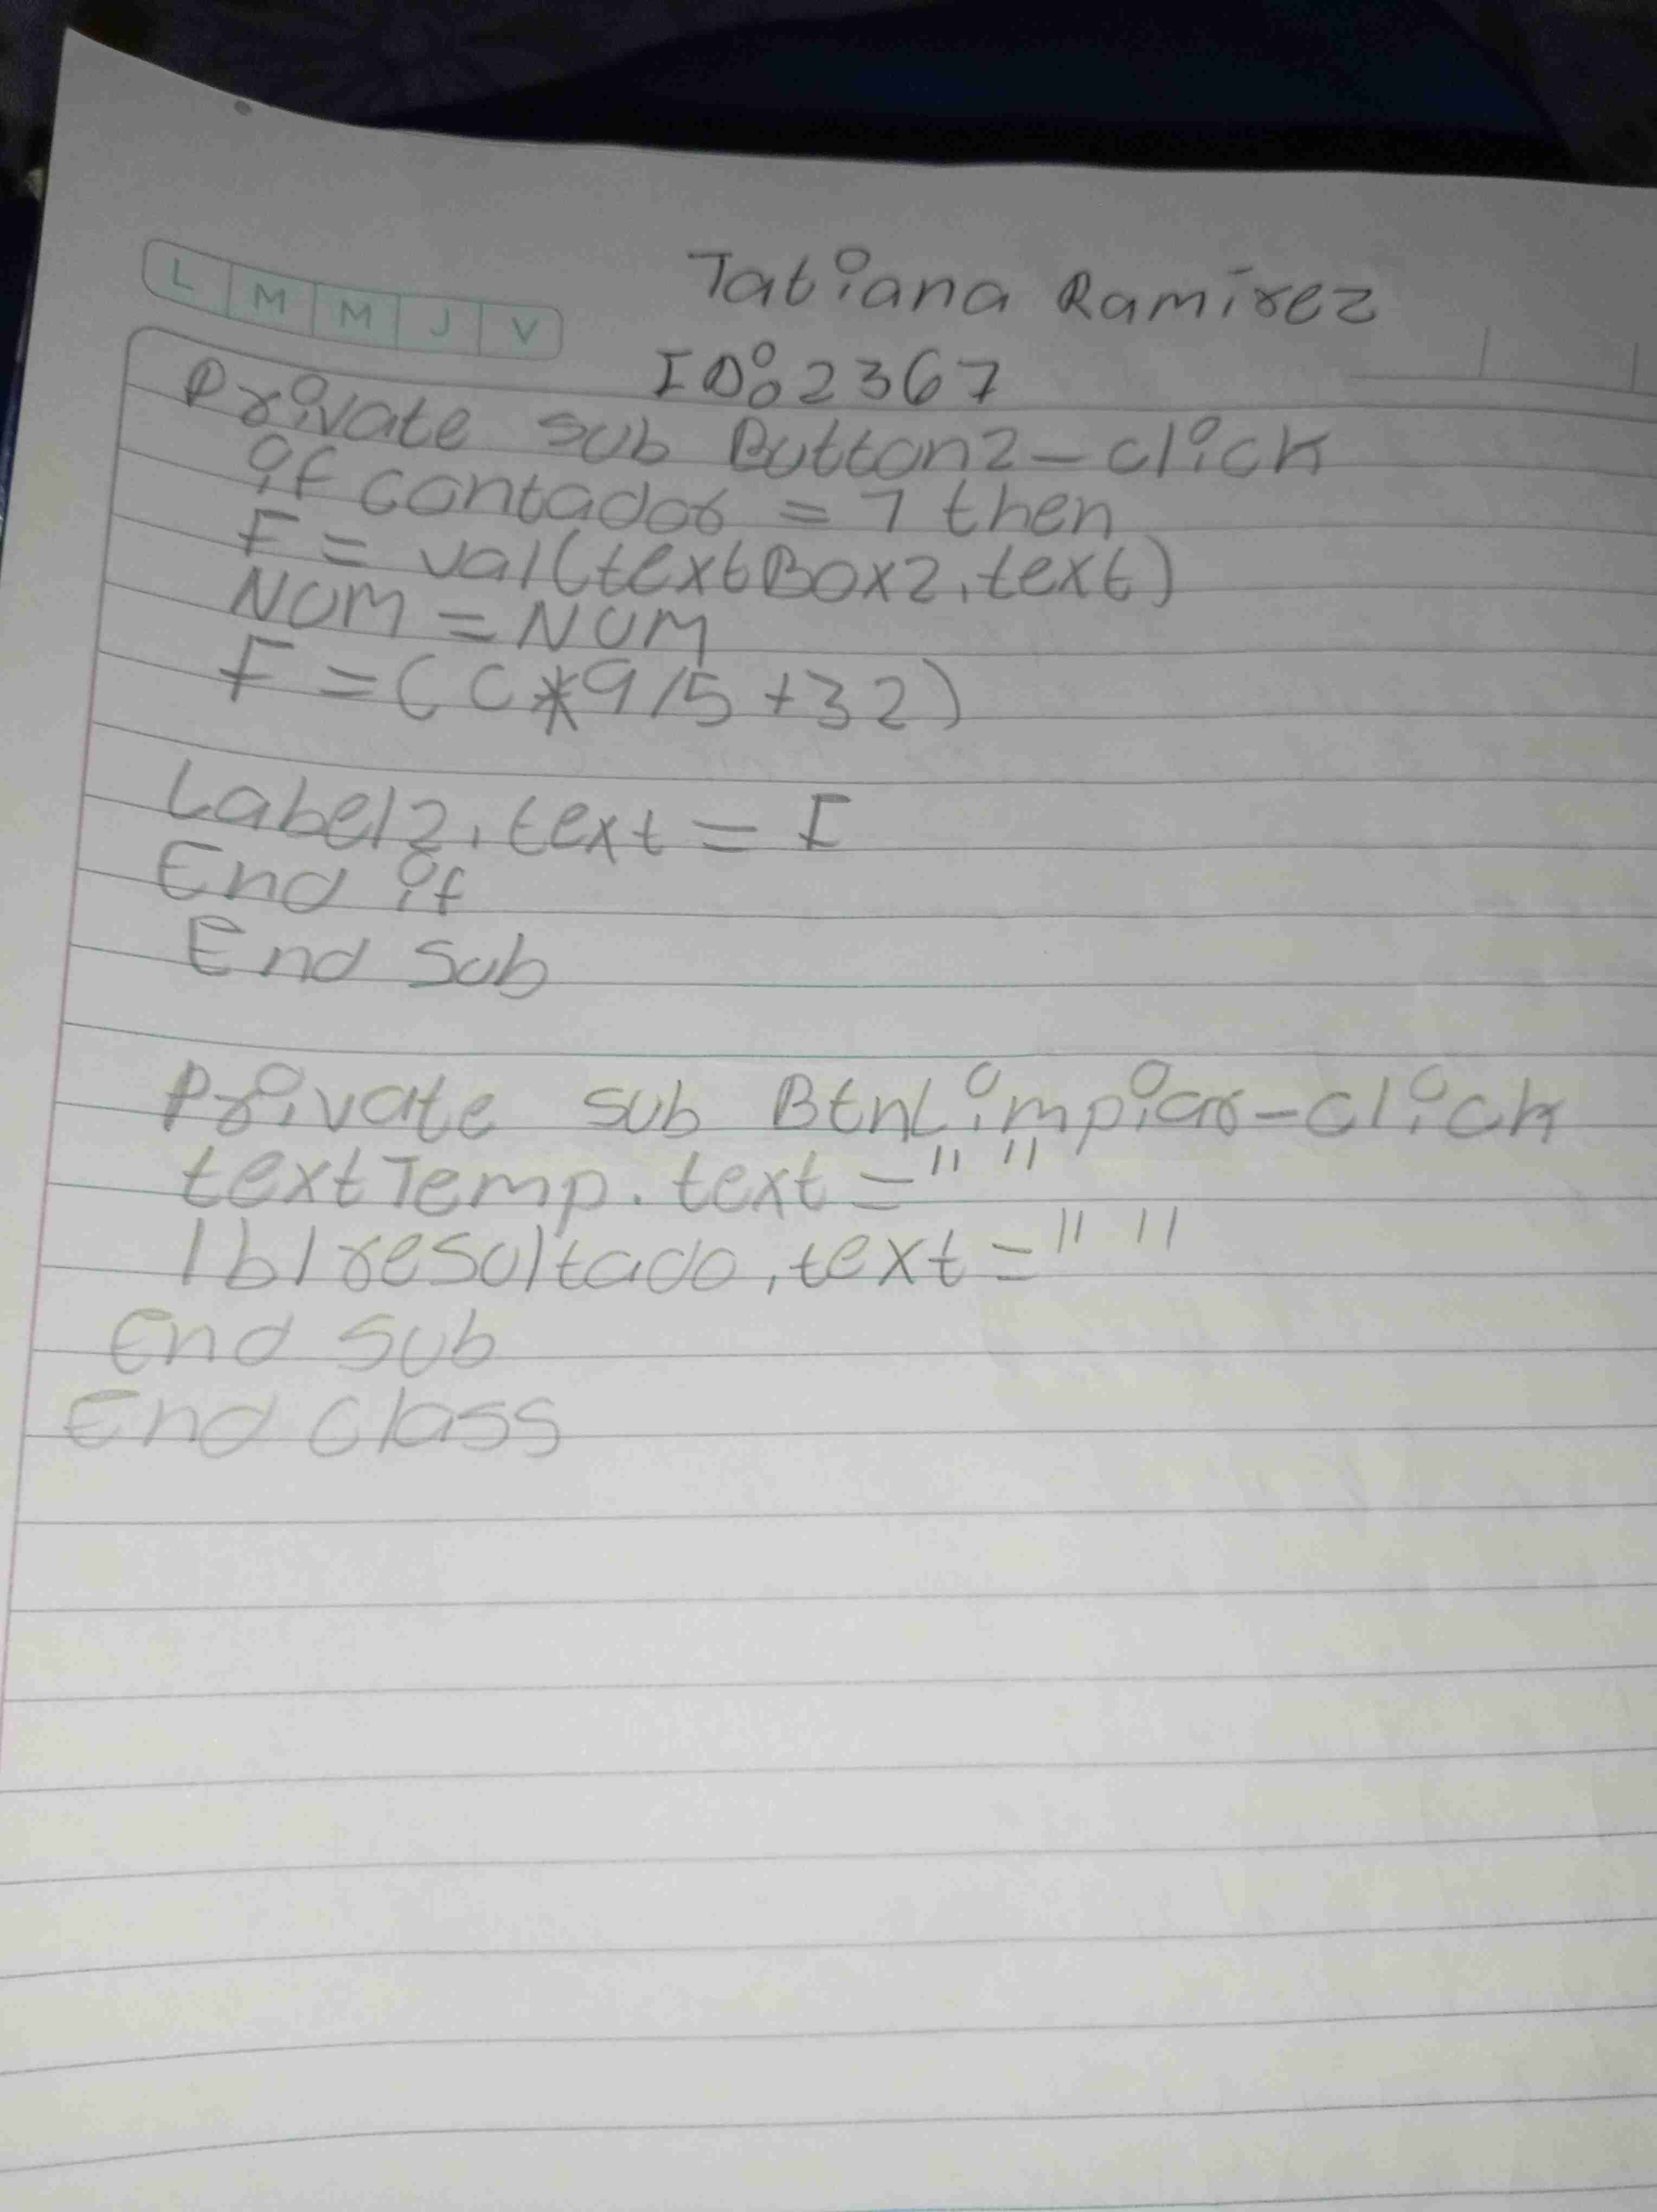 L M M J V
Tatiana Ramírez
ID: 2367
Private sub Button2-click
if contador = 1 then
F = val(textBox2.text)
NUM = NUM
F = (C*9/5+32)
Label2.text = F
End if
End Sub
Private sub BtnLimpiar-click
textTemp.text = " "
lblresultado.text = " "
End Sub
End Class